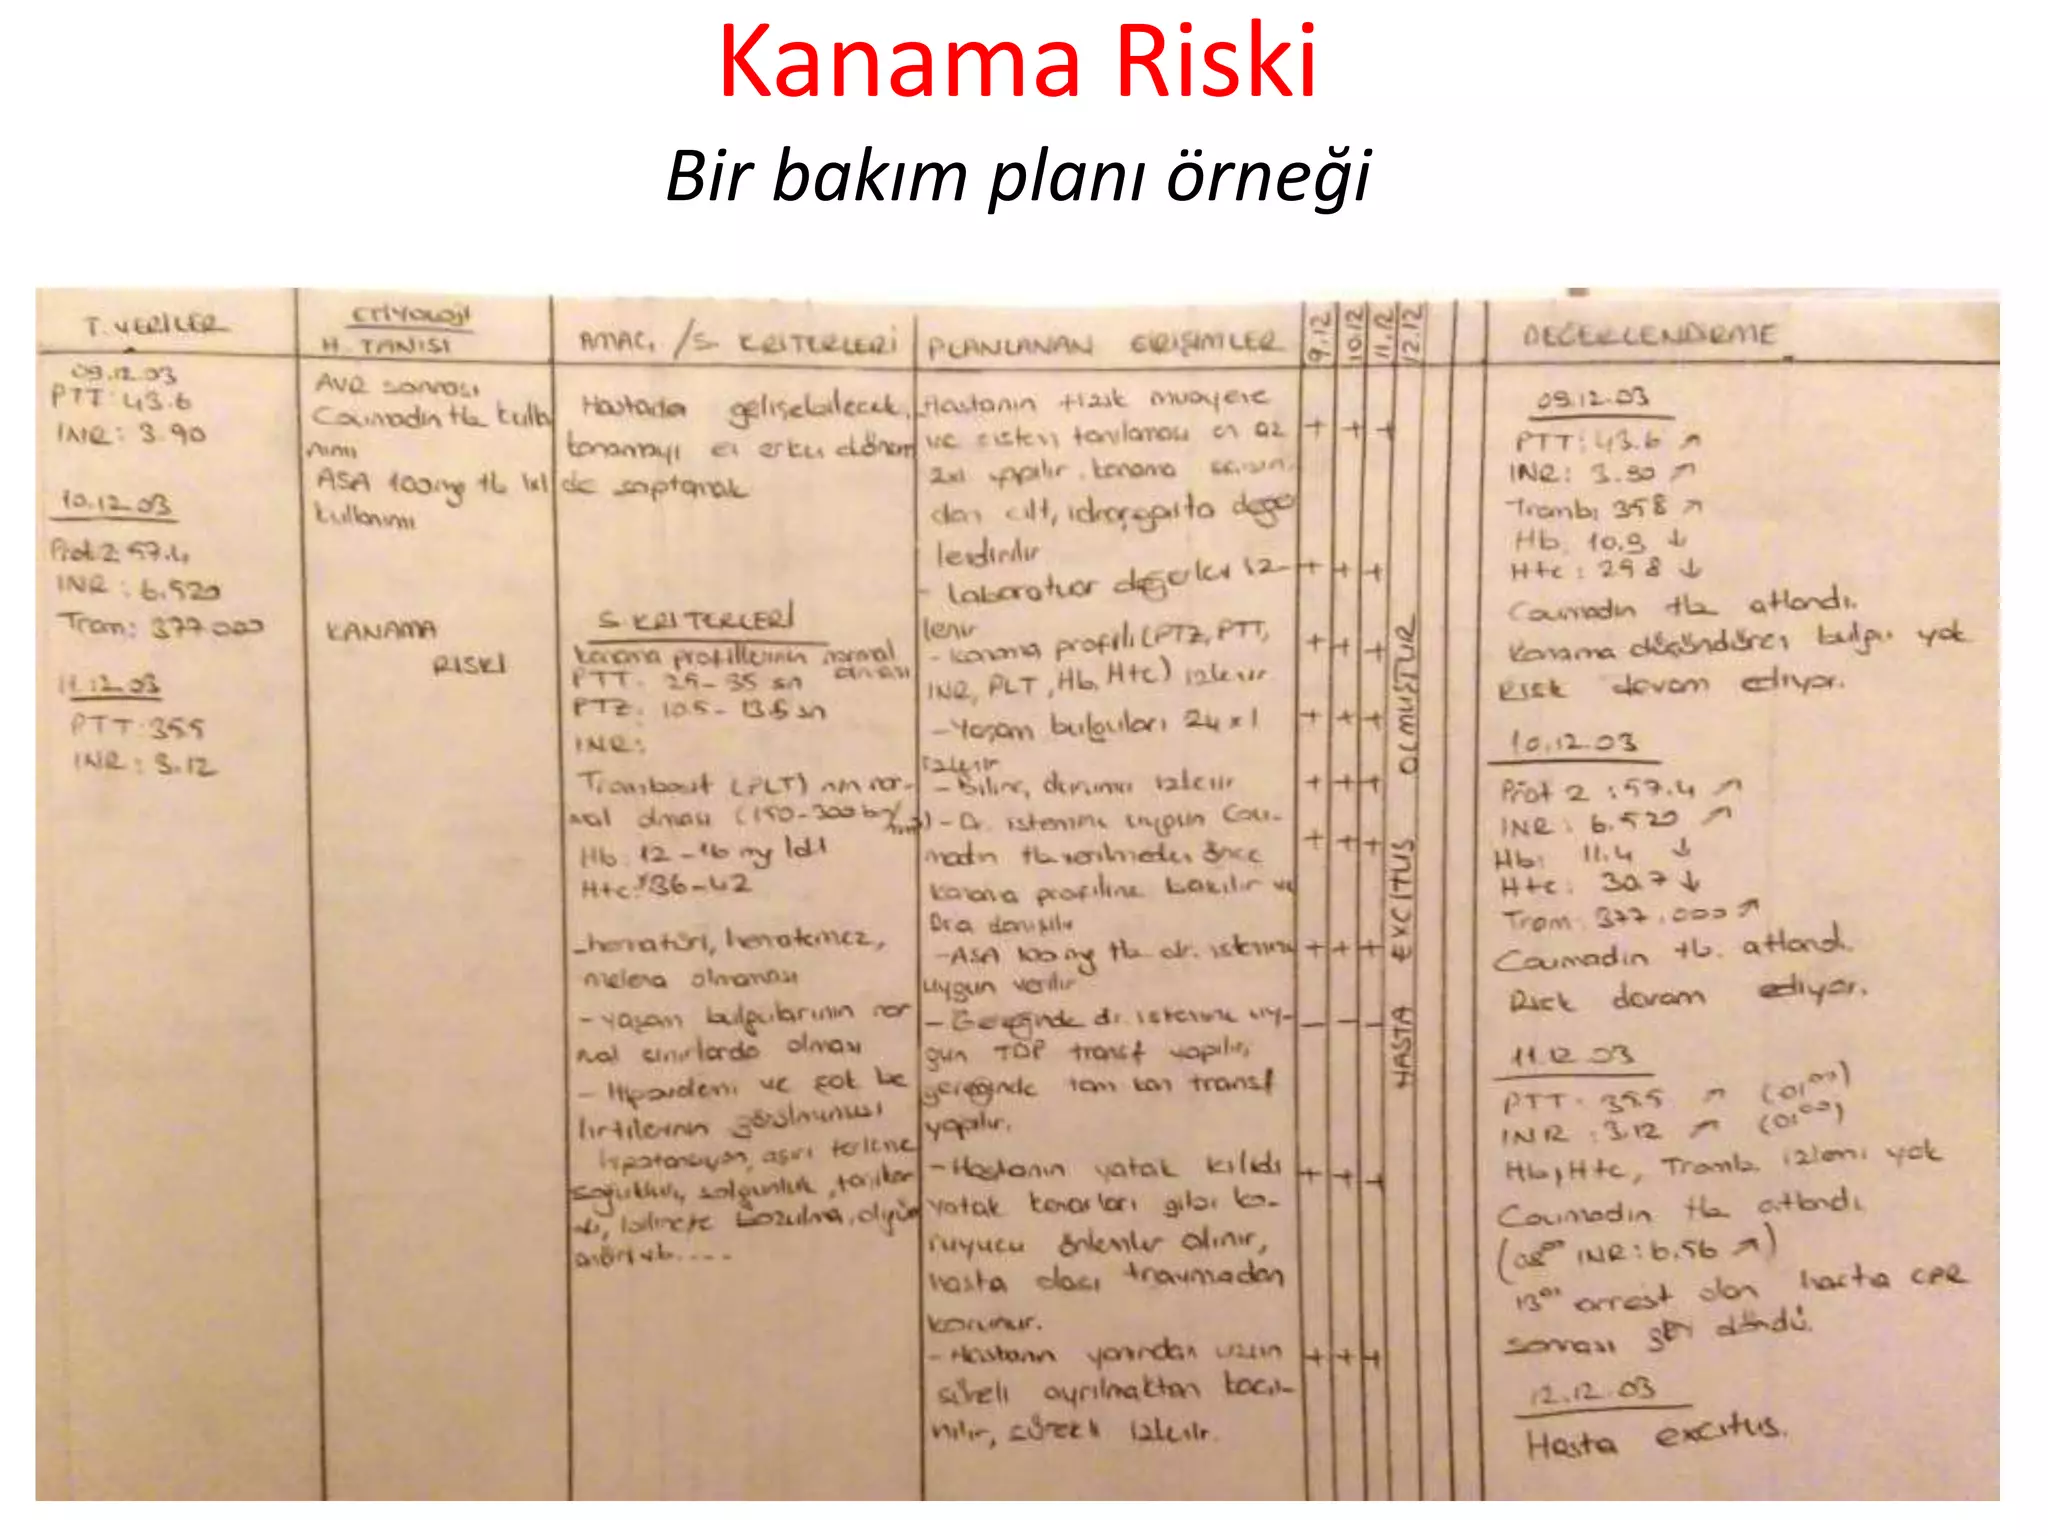 Kanama Riski
Bir bakım planı örneği
T. VERİLER
09.12.03
PTT: 43.6
INR: 3.90
10.12.03
Prot 2: 57.4
INR: 6.520
Trom: 377.000
11.12.03
PTT: 35.5
INR: 3.12
ETİYOLOJİ
H. TANISI
AVR sonrası
Coumadin tb kulla
nımı
ASA 100mg tb 1x1
kullanımı
KANAMA
RISKI
AMAÇ /S. KRİTERLERİ
Hastada gelişebilecek
kanamayı en erken dönem
de saptamak
S. KRITERLERİ
Kanama profillerinin normal
olması
PTT: 25-35 sn
PTZ: 10.5-13.5 sn
INR:
Trombosit (PLT) nın nor-
mal olması (150-300 bin/
Hb: 12-16 mg/dl
Htc: %36-42
-hematüri, hematemez,
melena olmaması
- yaşam bulgularının nor
mal sınırlarda olması
- Hipovolemi ve şok be
lirtilerinin görülmemesi
hipotansiyon, aşırı terleme
soğukluk, solgunluk, taşikar
di, bilinçte bozulma,
vb....
PLANLANAN GİRİŞİMLER
-Hastanın fizik muayene
ve sistem tanılaması en az
2x1 yapılır. kanama açısın-
dan cilt, idrar, gaita değer
lendirilir
- Laboratuar değerleri iz-
lenir
- kanama profili (PTZ, PTT,
INR, PLT, Hb, Htc) izlenir
- Yaşam bulguları 24x1
izlenir
- Bilinç durumu izlenir
- Dr. istemine uygun Cou-
madin tb verilmeden önce
kanama profiline bakılır ve
Dr.a danışılır
-ASA 100 mg tb dr. istemine
uygun verilir
- Gereğinde dr. istemine uy-
gun TDP transf yapılır,
gereğinde tam kan transf
yapılır.
-Hastanın yatak kilidi
yatak kenarları gibi ko-
ruyucu önlemler alınır,
hasta olası travmadan
korunur.
-Hastanın yanından uzun
süreli ayrılmaktan kaçı-
nılır, sürekli izlenir.
9.12
10.12
11.12
12.12
+ + +
+ + +
+ + +
+ + +
+ + +
+ + +
+ + +
- - -
+ + +
+ + +
HASTA EXCITUS OLMUŞTUR
DEĞERLENDİRME
09.12.03
PTT: 43.6 ↗
INR: 3.90 ↗
Tromb: 358 ↗
Hb: 10.9 ↓
Htc: 29.8 ↓
Coumadin tb atlandı.
Kanama düşündüren bulgu yok
Risk devam ediyor.
10.12.03
Prot 2: 57.4 ↗
INR: 6.520 ↗
Hb: 11.4 ↓
Htc: 30.7 ↓
Trom: 377.000 ↗
Coumadin tb. atlandı.
Risk devam ediyor.
11.12.03
PTT: 35.5 ↗ (01⁰⁰)
INR: 3.12 ↗ (01⁰⁰)
Hb, Htc, Tromb. izlemi yok
Coumadin tb atlandı.
(08⁰⁰ INR: 6.56 ↗)
arrest olan hasta CPR
sonrası geri döndü.
12.12.03
Hasta excitus.